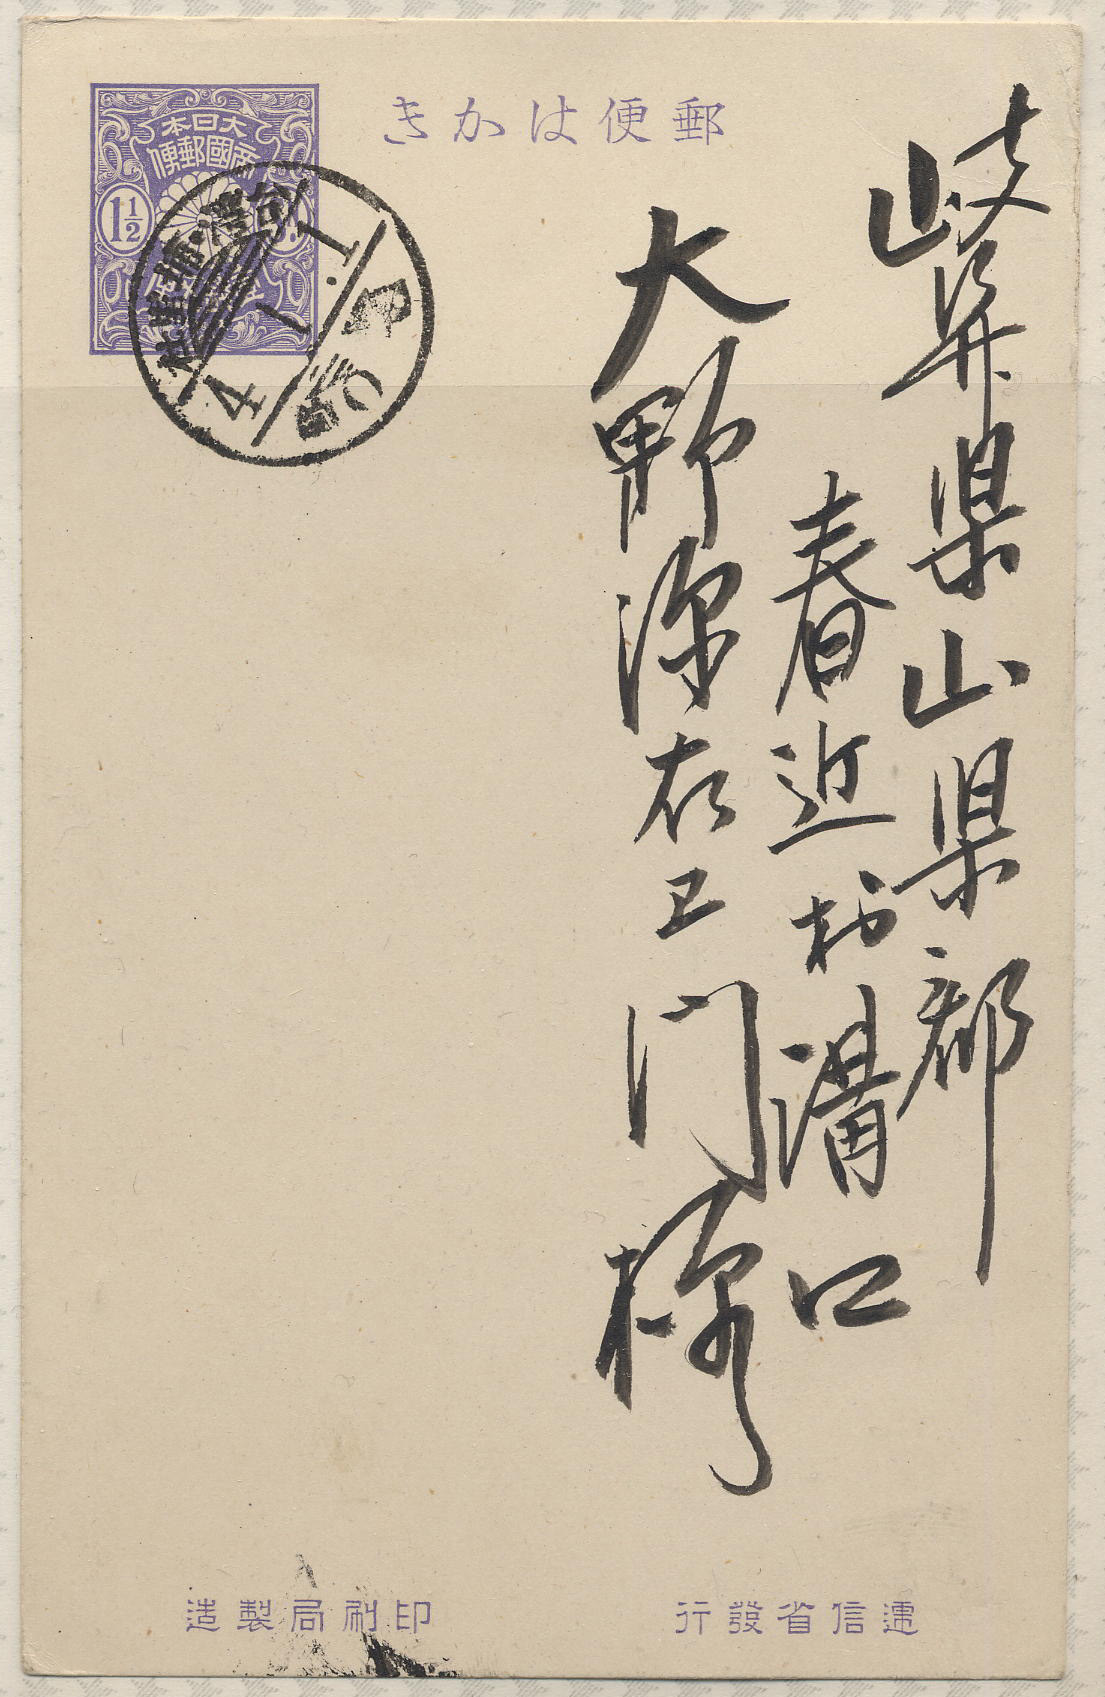 郵便はかき
大日本
帝國郵便
1½
岐阜県山県郡
春近村溝口
大野深右卫门様
4 1.1
逓信省發行
印刷局製造